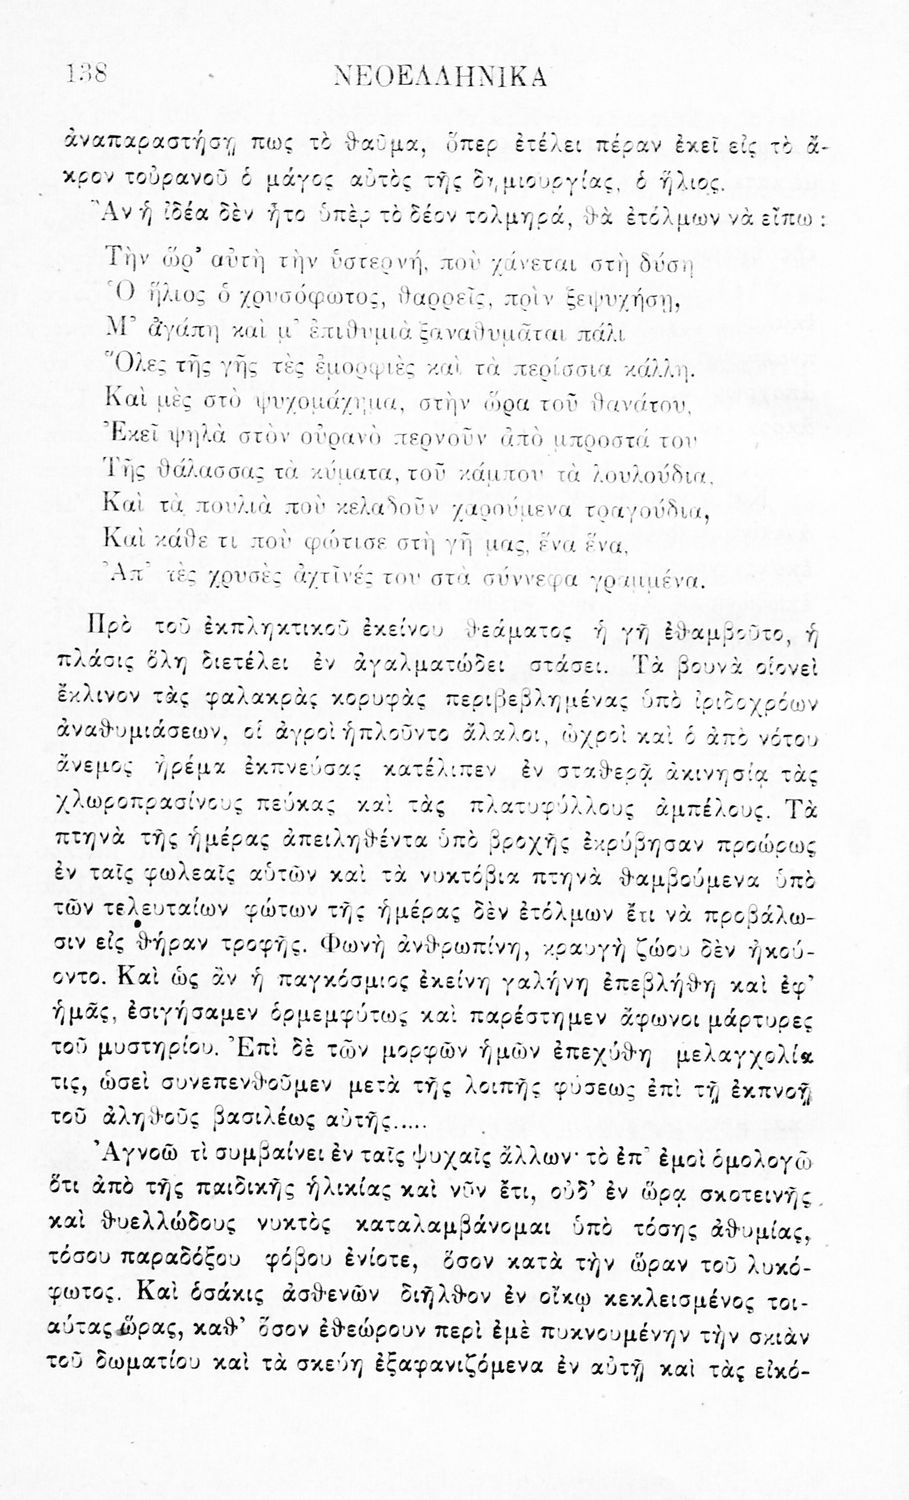 138
ΝΕΟΕΛΛΗΝΙΚΑ
ἀναπαραστήσῃ πως τὸ θαῦμα, ὅπερ ἐτέλει πέραν ἐκεῖ εἰς τὸ ἄ-
κρον τοὐρανοῦ ὁ μάγος αὐτὸς τῆς δημιουργίας, ὁ ἥλιος.
Ἂν ἡ ἰδέα δὲν ἦτο ὑπὲρ τὸ δέον τολμηρά, θὰ ἐτόλμων νὰ εἴπω :
Τὴν ὥρ’ αὐτὴ τὴν ὑστερνή, ποὺ χάνεται στὴ δύση
Ὁ ἥλιος ὁ χρυσόφωτος, θαρρεῖς, πρὶν ξεψυχήσῃ,
Μ’ ἀγάπη καὶ μ’ ἐπιθυμιὰ ξαναθυμᾶται πάλι
Ὅλες τῆς γῆς τὲς ἐμορφιὲς καὶ τὰ περίσσια κάλλη.
Καὶ μὲς στὸ ψυχομάχημα, στὴν ὥρα τοῦ θανάτου,
Ἐκεῖ ψηλὰ στὸν οὐρανὸ περνοῦν ἀπὸ μπροστά του
Τῆς θάλασσας τὰ κύματα, τοῦ κάμπου τὰ λουλούδια,
Καὶ τὰ πουλιὰ ποὺ κελαδοῦν χαρούμενα τραγούδια,
Καὶ κάθε τι ποὺ φώτισε στὴ γῆ μας, ἕνα ἕνα,
Ἀπ’ τὲς χρυσὲς ἀχτῖνές του στὰ σύννεφα γραμμένα.
Πρὸ τοῦ ἐκπληκτικοῦ ἐκείνου θεάματος ἡ γῆ ἐθαμβοῦτο, ἡ
πλάσις ὅλη διετέλει ἐν ἀγαλματώδει στάσει. Τὰ βουνὰ οἱονεὶ
ἔκλινον τὰς φαλακρὰς κορυφὰς περιβεβλημένας ὑπὸ ἰριδοχρόων
ἀναθυμιάσεων, οἱ ἀγροὶ ἡπλοῦντο ἄλαλοι, ὠχροὶ καὶ ὁ ἀπὸ νότου
ἄνεμος ἠρέμα ἐκπνεύσας κατέλιπεν ἐν σταθερᾷ ἀκινησίᾳ τὰς
χλωροπρασίνους πεύκας καὶ τὰς πλατυφύλλους ἀμπέλους. Τὰ
πτηνὰ τῆς ἡμέρας ἀπειληθέντα ὑπὸ βροχῆς ἐκρύβησαν προώρως
ἐν ταῖς φωλεαῖς αὑτῶν καὶ τὰ νυκτόβια πτηνὰ θαμβούμενα ὑπὸ
τῶν τελευταίων φώτων τῆς ἡμέρας δὲν ἐτόλμων ἔτι νὰ προβάλω-
σιν εἰς θήραν τροφῆς. Φωνὴ ἀνθρωπίνη, κραυγὴ ζώου δὲν ἠκού-
οντο. Καὶ ὡς ἂν ἡ παγκόσμιος ἐκείνη γαλήνη ἐπεβλήθη καὶ ἐφ’
ἡμᾶς, ἐσιγήσαμεν ὁρμεμφύτως καὶ παρέστημεν ἄφωνοι μάρτυρες
τοῦ μυστηρίου. Ἐπὶ δὲ τῶν μορφῶν ἡμῶν ἐπεχύθη μελαγχολία
τις, ὡσεὶ συνεπενθοῦμεν μετὰ τῆς λοιπῆς φύσεως ἐπὶ τῇ ἐκπνοῇ
τοῦ ἀληθοῦς βασιλέως αὐτῆς.....
Ἀγνοῶ τὶ συμβαίνει ἐν ταῖς ψυχαῖς ἄλλων· τὸ ἐπ’ ἐμοὶ ὁμολογῶ
ὅτι ἀπὸ τῆς παιδικῆς ἡλικίας καὶ νῦν ἔτι, οὐδ’ ἐν ὥρᾳ σκοτεινῆς
καὶ θυελλώδους νυκτὸς καταλαμβάνομαι ὑπὸ τόσης ἀθυμίας,
τόσου παραδόξου φόβου ἐνίοτε, ὅσον κατὰ τὴν ὥραν τοῦ λυκό-
φωτος. Καὶ ὁσάκις ἀσθενῶν διῆλθον ἐν οἴκῳ κεκλεισμένος τοι-
αύτας ὥρας, καθ’ ὅσον ἐθεώρουν περὶ ἐμὲ πυκνουμένην τὴν σκιὰν
τοῦ δωματίου καὶ τὰ σκεύη ἐξαφανιζόμενα ἐν αὐτῇ καὶ τὰς εἰκό-